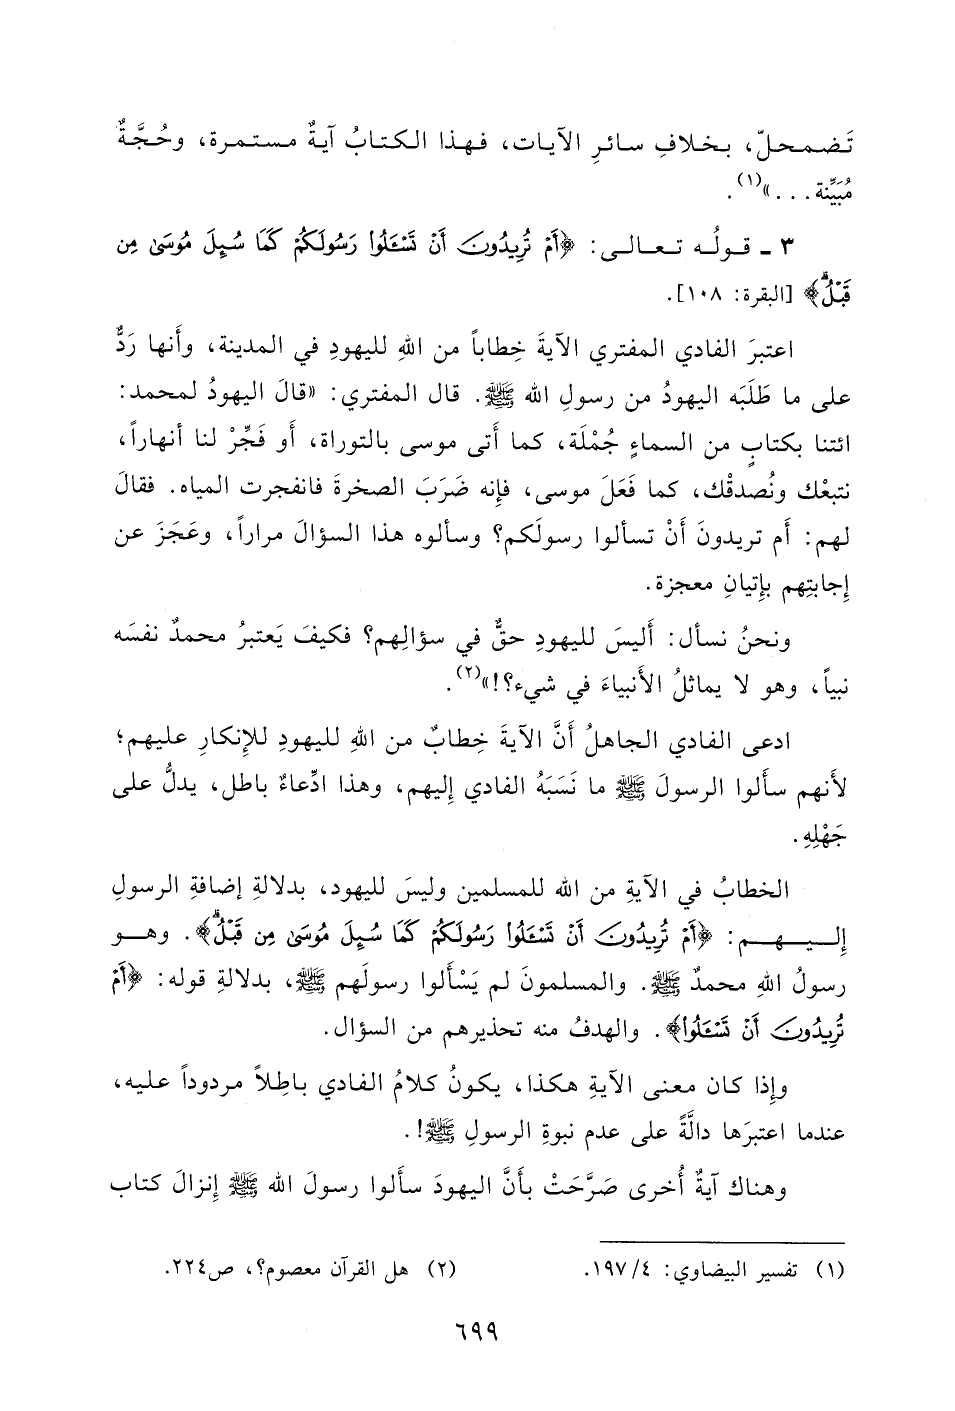 تَضمحلّ، بخلافِ سائرِ الآيات، فهذا الكتابُ آيةٌ مستمرة، وحُجَّةٌ
مُبَيِّنة. . .»(١).
٣ ـ قولُه تعالى: ﴿أَمْ تُرِيدُونَ أَن تَسْـَٔلُوا۟ رَسُولَكُمْ كَمَا سُئِلَ مُوسَىٰ مِن
قَبْلُ ۗ﴾ [البقرة: ١٠٨].
اعتبرَ الفادي المفتري الآيةَ خِطاباً من اللهِ لليهودِ في المدينة، وأَنها رَدٌّ
على ما طَلَبَه اليهودُ من رسولِ الله ﷺ. قال المفتري: «قالَ اليهودُ لمحمد:
ائتنا بكتابٍ من السماءِ جُمْلَة، كما أَتى موسى بالتوراة، أَو فَجِّرْ لنا أنهاراً،
نتبعْك ونُصدقْك، كما فَعَلَ موسى، فإِنه ضَرَبَ الصخرةَ فانفجرت المياه. فقالَ
لهم: أَم تريدونَ أَنْ تسألوا رسولَكم؟ وسألوه هذا السؤالَ مراراً، وعَجَزَ عن
إِجابتِهم بإِتيانِ معجزة.
ونحنُ نسأل: أَليسَ لليهودِ حقٌّ في سؤالِهم؟ فكيفَ يَعتبرُ محمدٌ نفسَه
نبياً، وهو لا يماثلُ الأنبياءَ في شيء؟!»(٢).
ادعى الفادي الجاهلُ أَنَّ الآيةَ خِطابٌ من اللهِ لليهودِ للإِنكارِ عليهم؛
لأَنهم سأَلوا الرسولَ ﷺ ما نَسَبَهُ الفادي إِليهم، وهذا ادِّعاءٌ باطل، يدلُّ على
جَهْلِهِ.
الخطابُ في الآيةِ من الله للمسلمين وليسَ لليهود، بدلالةِ إضافةِ الرسولِ
إليهم: ﴿أَمْ تُرِيدُونَ أَن تَسْـَٔلُوا۟ رَسُولَكُمْ كَمَا سُئِلَ مُوسَىٰ مِن قَبْلُ ۗ﴾. وهو
رسولُ اللهِ محمدٌ ﷺ. والمسلمونَ لم يَسْألوا رسولَهم ﷺ، بدلالةِ قوله: ﴿أَمْ
تُرِيدُونَ أَن تَسْـَٔلُوا۟﴾. والهدفُ منه تحذيرهم من السؤال.
وإِذا كان معنى الآيةِ هكذا، يكونُ كلامُ الفادي باطِلاً مردوداً عليه،
عندما اعتبرَها دالَّةً على عدم نبوةِ الرسولِ ﷺ!.
وهناك آيةٌ أُخرى صَرَّحَتْ بأَنَّ اليهودَ سأَلوا رسولَ الله ﷺ إِنزالَ كتاب
(١) تفسير البيضاوي: ٤/ ١٩٧.
(٢) هل القرآن معصوم؟، ص٢٢٤.
٦٩٩